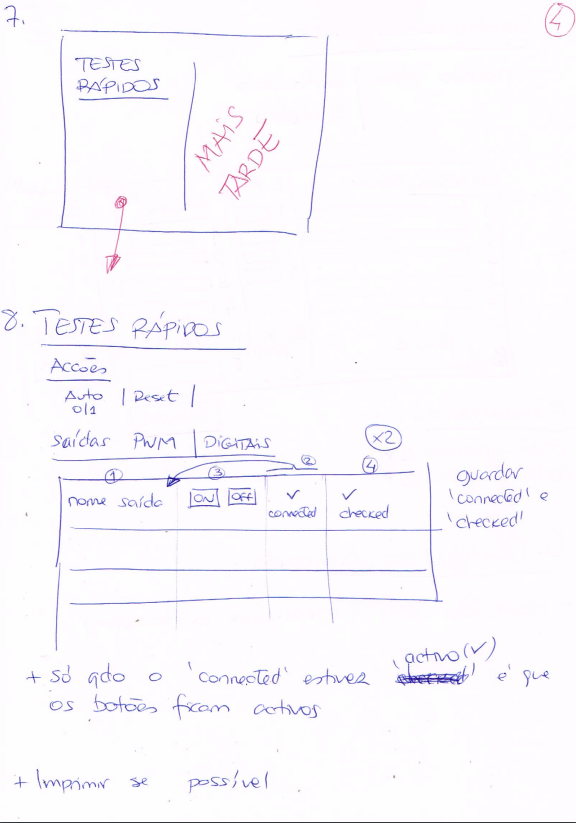 7.
4
TESTES
RÁPIDOS
MAIS
TARDE
8. TESTES RÁPIDOS
Acções
Auto | Reset |
0/1
saídas PWM | DIGITAIS
x2
1 3 2 4
nome saída ON OFF ✓ ✓
connected checked
guardar
'connected' e
'checked'
+ Só qdo o 'connected' estiver 'activo(✓)' é que
os botões ficam activos
+ Imprimir se possível